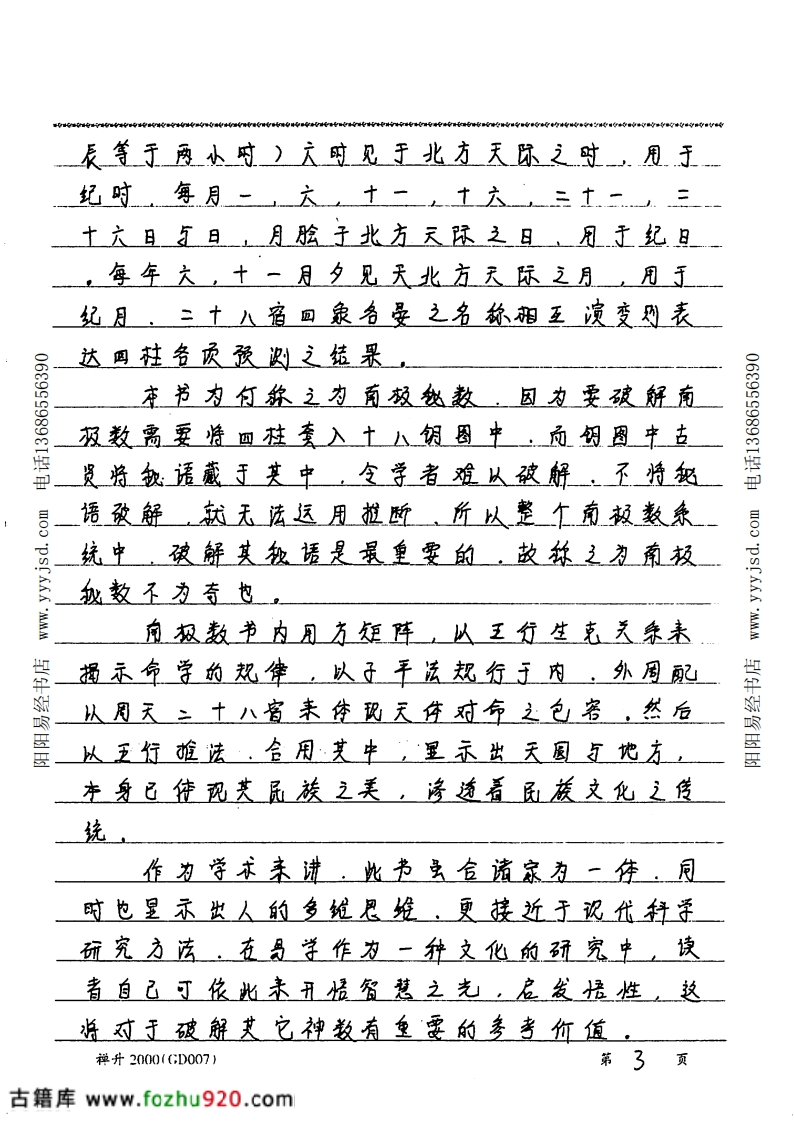 辰等于两小时）六时见于北方天际之时，用于
纪时．每月一，六，十一，十六，二十一，二
十六日与日，月脸于北方天际之日、用于纪日
。每年六，十一月夕见天北方天际之月，用于
纪月．二十八宿四象各晏之名称相互演变则表
达四柱各项预测之结果。
本书为何称之为南极秘数．因为要破解南
极数需要将四柱套入十八钥图中．而钥图中古
贤将秘语藏于其中，令学者难以破解．不将秘
语破解．就无法运用推断、所以整个南极数系
统中．破解其秘语是最重要的．故称之为南极
秘数不为奇也。
南极数书内用方矩阵，以五行生克关系来
揭示命学的规律，以子平法规行于内．外周配
以周天二十八宿来体现天体对命之包容．然后
以五行推法．合用其中，显示出天圆与地方，
本身已体现其民族之美，渗透着民族文化之传
统．
作为学术来讲．此书虽合诸家为一体．同
时也显示出人的多维思维．更接近于现代科学
研究方法．在易学作为一种文化的研究中，读
者自己可依此来开悟智慧之光，启发悟性，这
将对于破解其它神数有重要的参考价值。
禅升2000(GD007)
第 3 页
阳阳易经书店 www.yyyjsd.com 电话13686556390
阳阳易经书店 www.yyyjsd.com 电话13686556390
古籍库 www.fozhu920.com